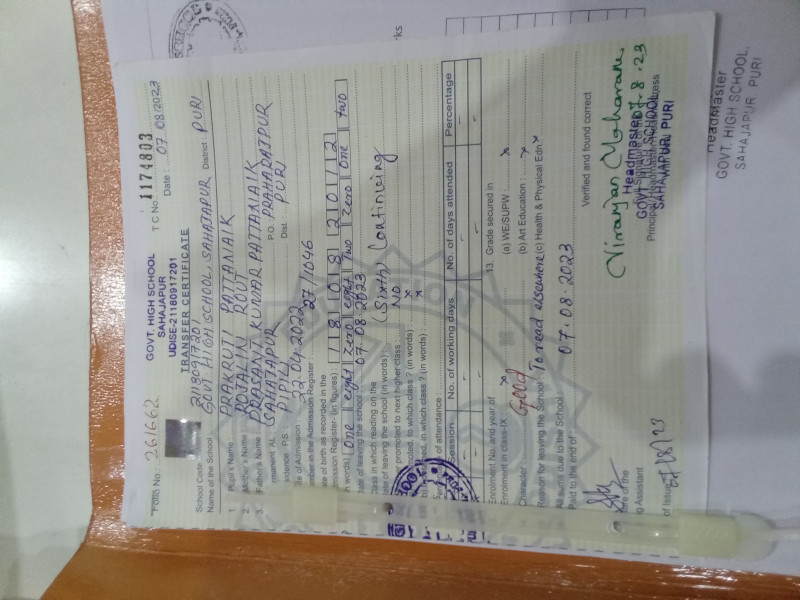 Folio No. : 261662
GOVT. HIGH SCHOOL
SAHAJAPUR
UDISE-21180917201
TRANSFER CERTIFICATE
T C No. 1174803
Date : 07.08/2023
School Code : 21180917201
Name of the School : GOVT. HIGH SCHOOL, SAHAJAPUR District PURI
1. Pupil's Name PRAKRUTI PATTANAIK
2. Mother's Name ROJALIN ROUT
3. Father's Name PRASANT KUMAR PATTANAIK
rmanent At. SAHAJAPUR P.O. PRAHARAJPUR
sidence P.S. PIPILI Dist. : PURI
te of Admission 22.04.2022
mber in the Admission Register : 27/1046
te of birth as recorded in the
mission Register- (in figures) 18 08 2012
n words) One eight Zero eight Two Zero One Two
Date of leaving the school 07.08.2023
Class in which reading on the
date of leaving the school (in words) (Sixth) Continuing
promoted to next higher class : NO
oted to which class ? (in words) : x
ed, in which class ? (in words) : x
of attendance
Session No. of working days No. of days attended Percentage
Enrolment No. and year of
Enrolment in class-IX x
13. Grade secured in
(a) WE/SUPW : x
(b) Art Education : x
(c) Health & Physical Edn x
Character : Good
Reason for leaving the School To read elsewhere
All sums due to the School
Paid to the end of : 07.08.2023
Verified and found correct
Niranjan Moharana
07.8.23
Headmaster
GOVT. HIGH SCHOOL
SAHAJAPUR, PURI
Principal/Headmaster/Headmistress
g Assistant
of Issue
Headmaster
GOVT. HIGH SCHOOL,
SAHAJAPUR PURI
rks